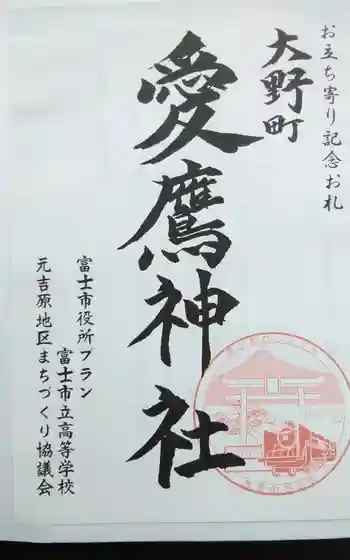 お立ち寄り記念お札
大野町
愛鷹神社
富士市役所プラン
富士市立高等学校
元吉原地区まちづくり協議会